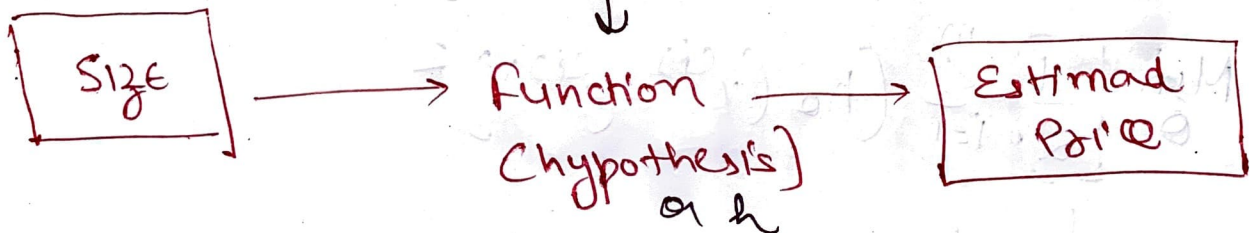 Size
function
(hypothesis)
or h
Estimad
Price